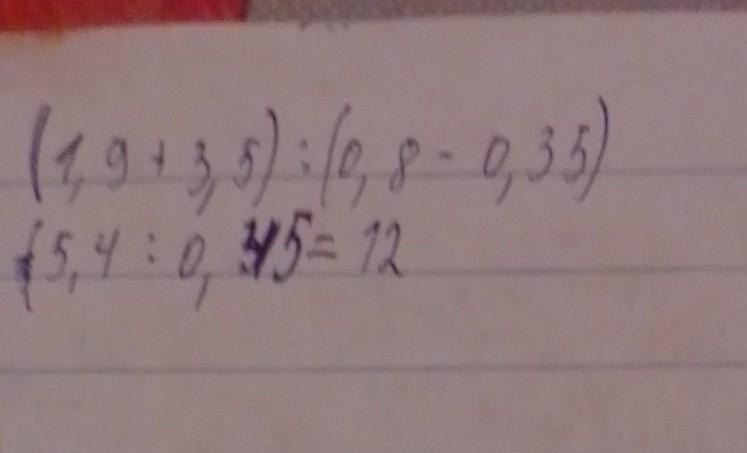 (1,9 + 3,5) : (0,8 - 0,35)
(5,4 : 0,45 = 12